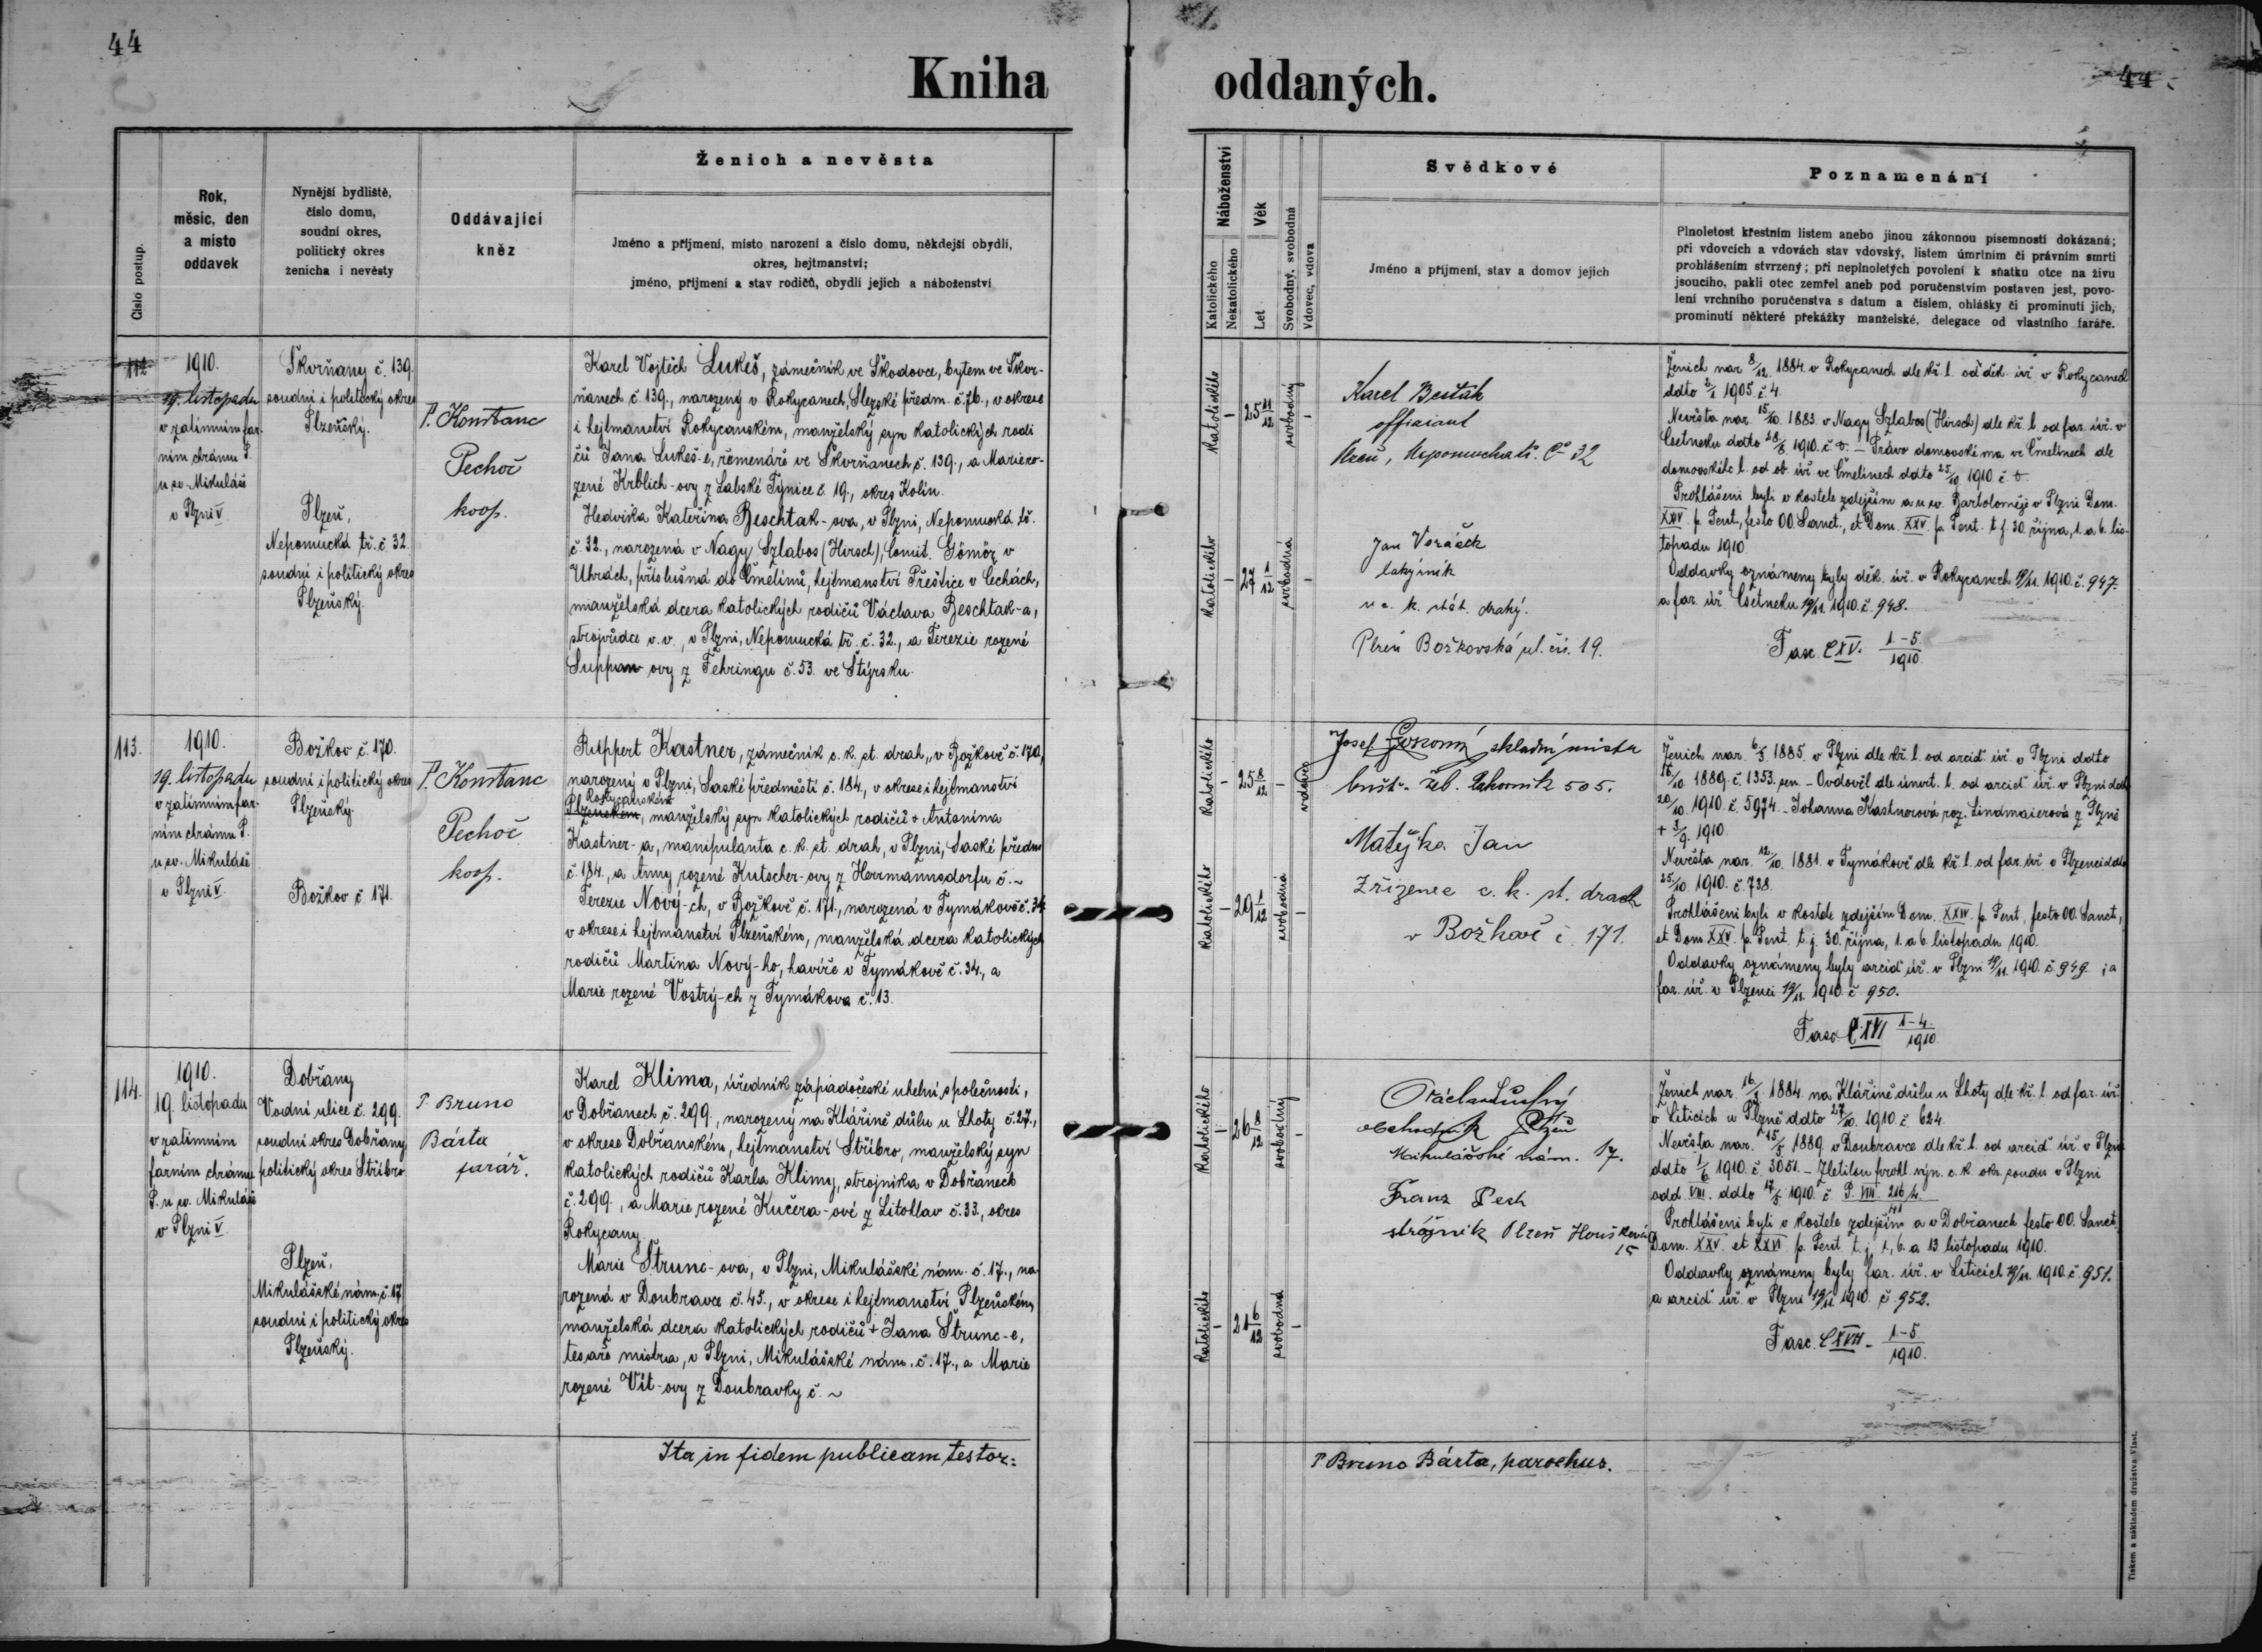 44
Kniha oddaných.
44
Číslo postup.
Rok,
měsíc, den
a místo
oddavek
Nynější bydliště,
číslo domu,
soudní okres,
politický okres
ženicha i nevěsty
Oddávající
kněz
Ženich a nevěsta
Jméno a příjmení, místo narození a číslo domu, někdejší obydlí,
okres, hejtmanství;
jméno, příjmení a stav rodičů, obydlí jejich a náboženství
Náboženství
Katolického
Nekatolického
Věk
Let
Svobodný, svobodná
Vdovec, vdova
Svědkové
Jméno a příjmení, stav a domov jejich
Poznamenání
Plnoletost křestním listem anebo jinou zákonnou písemností dokázaná;
při vdovcích a vdovách stav vdovský, listem úmrtním či právním smrti
prohlášením stvrzený; při neplnoletých povolení k sňatku otce na živu
jsoucího, pakli otec zemřel aneb pod poručenstvím postaven jest, povo-
lení vrchního poručenstva s datum a číslem, ohlášky či prominutí jich,
prominutí některé překážky manželské, delegace od vlastního faráře.
112
1910.
19. listopadu
v zatímním far-
ním chrámu P.
u sv. Mikuláše
v Plzni V
Škvrňany č. 139.
soudní i politický okres
Plzeňský.
Plzeň,
Nepomucká tř. č. 32.
soudní i politický okres
Plzeňský.
P. Konstanc
Pechoč
koop.
Karel Vojtěch Lukeš, zámečník ve Škodovce, bytem ve Škvr-
ňanech č. 139., narozený v Rokycanech, Slezské předm. č. 76., v okrese
i hejtmanství Rokycanském, manželský syn katolických rodi
čů Jana Lukeš-e, řemenáře ve Škvrňanech č. 139., a Marie ro-
zené Krblich-ovy z Labské Týnice č. 19., okres Kolín.
Hedvika Kateřina Beschtak-ova, v Plzni, Nepomucká tř.
č. 32., narozená v Nagy Szlabos (Hirsch), Comit. Gömör v
Uhrách, příslušná do Čmelínů, hejtmanství Přeštice v Čechách,
manželská dcera katolických rodičů Václava Beschtak-a,
strojvůdce v. v., v Plzni, Nepomucká tř. č. 32., a Terezie rozené
Suppan-ovy z Fehringu č. 53. ve Štýrsku.
katolického
25 11/12
svobodný
katolického
27 1/12
svobodná
Karel Bešták
officiant
Plzeň, Nepomucká tř. Č 32
Jan Voráček
lakýrník
u c. k. stát. drahý.
Plzeň Božkovská ul. čís. 19.
Ženich nar. 8/12. 1884 v Rokycanech dle kř. l. od děk. úř. v Rokycanech
ddto 2/1 1905. č. 4.
Nevěsta nar. 15/10. 1883. v Nagy Szlabos (Hirsch) dle kř. l. od far. úř. v
Csetneku ddto 1910. č. – Právo domovské má ve Čmelínech dle
domovského l. od ob. úř. ve Čmelínech ddto 25/10 1910 č.
Prohlášeni byli v kostele zdejším a u sv. Bartoloměje v Plzni Dom.
XXIV. p. Pent., festo OO. Sanct., et Dom. XXV. p. Pent. t. j. 30. října, 1. a 6. lis-
topadu 1910
Oddavky oznámeny byly děk. úř. v Rokycanech 19/11. 1910. č. 947.
a far. úř. Csetneku 19/11. 1910. č. 948.
Fasc. CXV. 1-5/1910
113.
1910.
19. listopadu
v zatímním far-
ním chrámu P.
u sv. Mikuláše
v Plzni V.
Božkov č. 170.
soudní i politický okres
Plzeňský.
Božkov č. 171.
P. Konstanc
Pechoč
koop.
Ruppert Kastner, zámečník c. k. st. drah, v Božkově č. 170,
narozený v Plzni, Saské předměstí č. 184., v okrese i hejtmanství
Rokycanském
Plzeňském, manželský syn katolických rodičů + Antonína
Kastner-a, manipulanta c. k. st. drah, v Plzni, Saské předm
č. 184., a Anny rozené Kutscher-ovy z Herrmannsdorfu č. ~
Terezie Nový-ch, v Božkově č. 171., narozená v Tymákově č. 34
v okrese i hejtmanství Plzeňském, manželská dcera katolických
rodičů Martina Nový-ho, havíře v Tymákově č. 34., a
Marie rozené Vostrý-ch z Tymákova č. 13.
katolického
25 8/12
vdovec
katolického
29 1/12
svobodná
Josef skladní mistr
505.
Matějka Jan
Zřízenec c. k. st. drach
v Božkově č. 171.
Ženich nar. 6/3. 1885. v Plzni dle kř. l. od arcid. úř. v Plzni ddto
16/10 1889. č. 1353. – Ovdověl dle úmrt. l. od arcid. úř. v Plzni ddto
20/10. 1910. č. 5974. – Johanna Kastnerová roz. Lindmaierová z Plzně
+ 3/9. 1910.
Nevěsta nar. 12/10. 1881. v Tymákově dle kř. l. od far. úř. v Plzenci ddto
25/10. 1910. č. 738.
Prohlášeni byli v kostele zdejším Dom. XXIV. p. Pent., festo OO. Sanct,
et Dom. XXV. p. Pent. t. j. 30. října, 1. a 6. listopadu 1910.
Oddavky oznámeny byly arcid. úř. v Plzni 19/11. 1910. č. 949. ; a
far. úř. v Plzenci 19/11. 1910. č 950.
Fasc. CXVI 1-4./1910
114.
1910.
19. listopadu
v zatímním
farním chrámu
P. u sv. Mikuláše
v Plzni V.
Dobřany
Vodní ulice č. 299.
soudní okres Dobřany
politický okres Stříbro
Plzeň,
Mikulášské nám. č. 17
soudní i politický okres
Plzeňský.
P. Bruno
Bárta
farář.
Karel Klima, úředník západočeské uhelné společnosti,
v Dobřanech č. 299., narozený na Klářině důlu u Lhoty č. 27.,
v okrese Dobřanském, hejtmanství Stříbro, manželský syn
katolických rodičů Karla Klimy, strojníka v Dobřanech
č. 299., a Marie rozené Kučera-ové z Litohlav č. 33., okres
Rokycany.
Marie Štrunc-ova, v Plzni, Mikulášské nám. č. 17., na
rozená v Doubravce č. 45., v okrese i hejtmanství Plzeňském,
manželská dcera katolických rodičů + Jana Štrunc-e,
tesaře mistra, v Plzni, Mikulášské nám. č. 17., a Marie
rozené Vít-ovy z Doubravky č. ~
katolického
26 8/12
svobodný
katolického
21 6/12
svobodná
obchodník Plzeň
Mikulášské nám. 17.
Franz Pech
strážník Plzeň Houškova
15
Ženich nar. 1884. na Klářině důlu u Lhoty dle kř. l. od far. úř.
v Liticích u Plzně ddto 27/10. 1910. č 624.
Nevěsta nar. 15/5 1889. v Doubravce dle kř. l. od arcid. úř. v Plzni
ddto 1/6 1910. č 3051. – Zletilou prohl. výn. c. k. okr. soudu v Plzni
odd. VIII. ddto 17/5 1910. č. P. VIII. 216/4.
Prohlášeni byli v kostele zdejším a v Dobřanech festo OO. Sanct,
Dom. XXV. et XXVI. p. Pent. t. j. 1., 6. a 13 listopadu 1910.
Oddavky oznámeny byly far. úř. v Liticích 19/11. 1910. č. 951.
a arcid. úř. v Plzni 19/11. 1910. č 952.
Fasc. CXVII. 1-5/1910.
Ita in fidem publicam testor:
P. Bruno Bárta, parochus.
Tiskem a nákladem družstva Vlast.